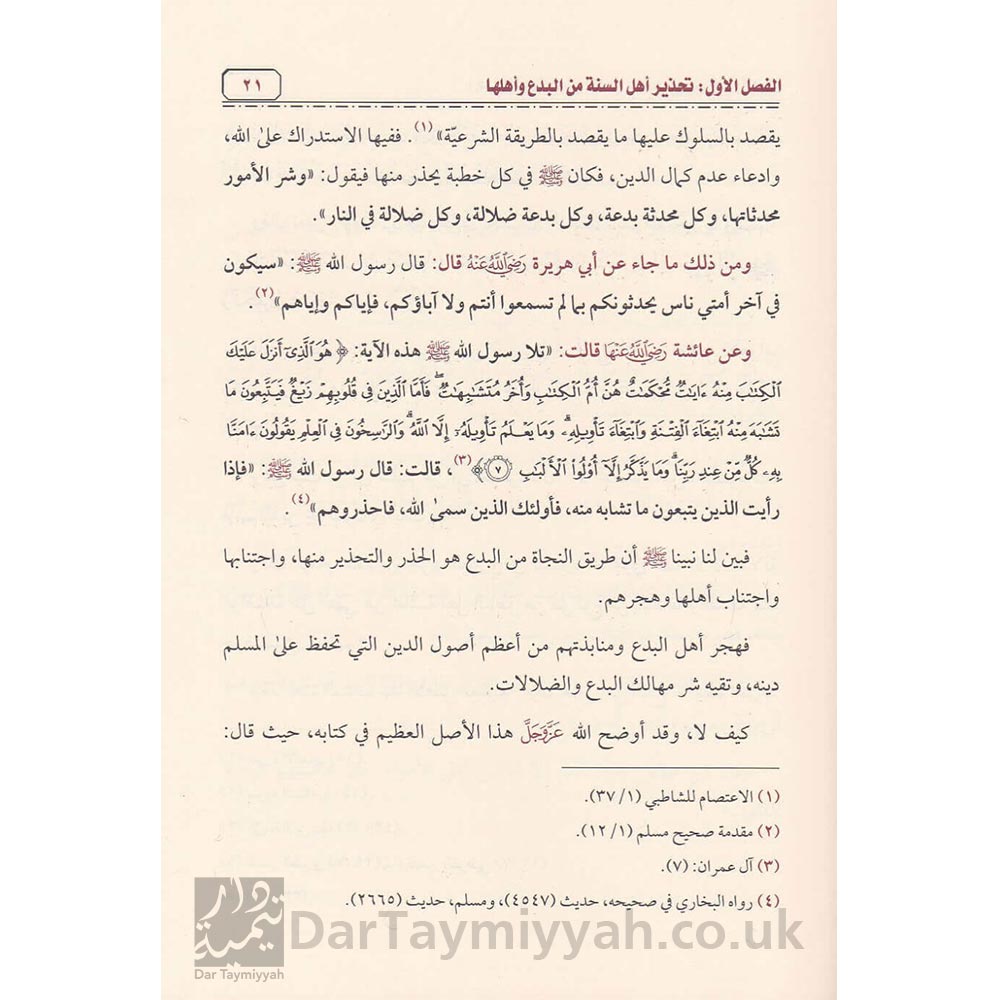 الفصل الأول: تحذير أهل السنة من البدع وأهلها
٢١
يقصد بالسلوك عليها ما يقصد بالطريقة الشرعيّة»(١). ففيها الاستدراك علىٰ الله،
وادعاء عدم كمال الدين، فكان ﷺ في كل خطبة يحذر منها فيقول: «وشر الأمور
محدثاتها، وكل محدثة بدعة، وكل بدعة ضلالة، وكل ضلالة في النار».
ومن ذلك ما جاء عن أبي هريرة رَضِيَ اللَّهُ عَنْهُ قال: قال رسول الله ﷺ: «سيكون
في آخر أمتي ناس يحدثونكم بما لم تسمعوا أنتم ولا آباؤكم، فإياكم وإياهم»(٢).
وعن عائشة رَضِيَ اللَّهُ عَنْهَا قالت: «تلا رسول الله ﷺ هذه الآية: ﴿هُوَ ٱلَّذِىٓ أَنزَلَ عَلَيْكَ
ٱلْكِتَٰبَ مِنْهُ ءَايَٰتٌ مُّحْكَمَٰتٌ هُنَّ أُمُّ ٱلْكِتَٰبِ وَأُخَرُ مُتَشَٰبِهَٰتٌ ۖ فَأَمَّا ٱلَّذِينَ فِى قُلُوبِهِمْ زَيْغٌ فَيَتَّبِعُونَ مَا
تَشَٰبَهَ مِنْهُ ٱبْتِغَآءَ ٱلْفِتْنَةِ وَٱبْتِغَآءَ تَأْوِيلِهِۦ ۗ وَمَا يَعْلَمُ تَأْوِيلَهُۥٓ إِلَّا ٱللَّهُ ۗ وَٱلرَّٰسِخُونَ فِى ٱلْعِلْمِ يَقُولُونَ ءَامَنَّا
بِهِۦ كُلٌّ مِّنْ عِندِ رَبِّنَا ۗ وَمَا يَذَّكَّرُ إِلَّآ أُو۟لُوا۟ ٱلْأَلْبَٰبِ ۝٧﴾(٣)، قالت: قال رسول الله ﷺ: «فإذا
رأيت الذين يتبعون ما تشابه منه، فأولئك الذين سمىٰ الله، فاحذروهم»(٤).
فبين لنا نبينا ﷺ أن طريق النجاة من البدع هو الحذر والتحذير منها، واجتنابها
واجتناب أهلها وهجرهم.
فهجر أهل البدع ومنابذتهم من أعظم أصول الدين التي تحفظ علىٰ المسلم
دينه، وتقيه شر مهالك البدع والضلالات.
كيف لا، وقد أوضح الله عَزَّوَجَلَّ هذا الأصل العظيم في كتابه، حيث قال:
(١) الاعتصام للشاطبي (١/ ٣٧).
(٢) مقدمة صحيح مسلم (١/ ١٢).
(٣) آل عمران: (٧).
(٤) رواه البخاري في صحيحه، حديث (٤٥٤٧)، ومسلم، حديث (٢٦٦٥).
دار تيمية
Dar Taymiyyah
DarTaymiyyah.co.uk